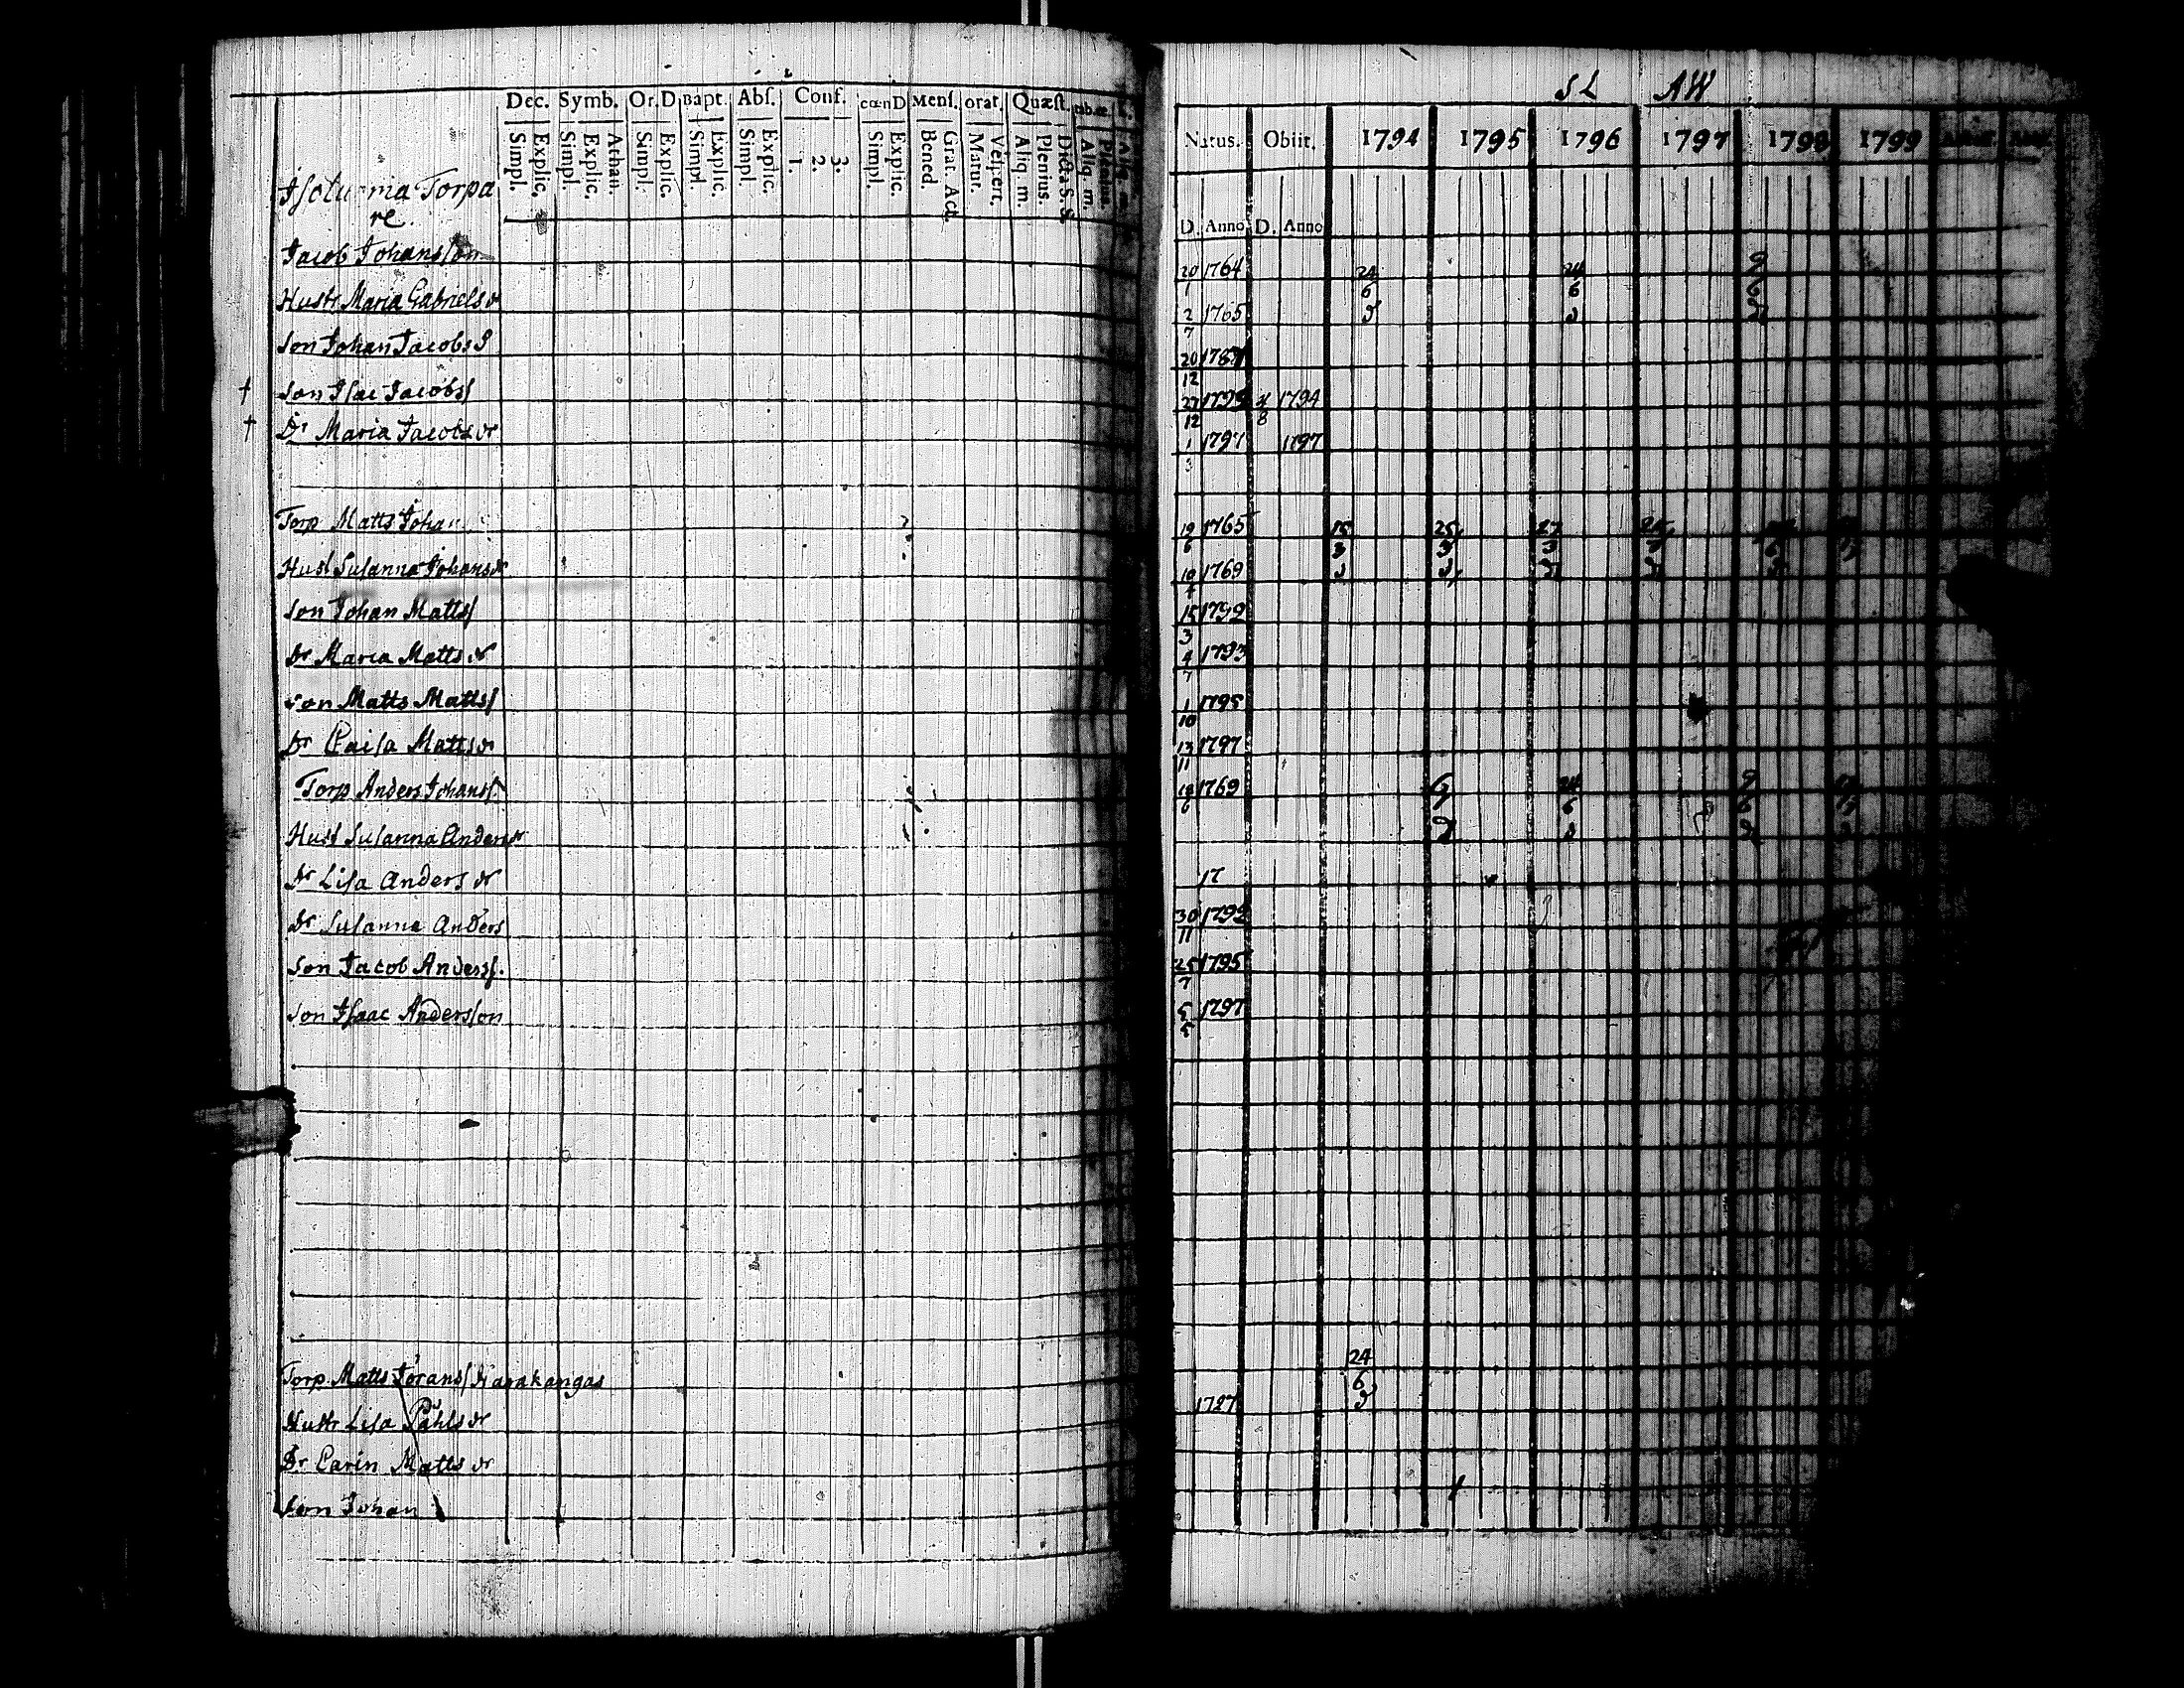 Dec. Symb. Or. D Bapt. Abs. Conf. cœn D Mens. orat. Quæst.
Simpl. Explic. Simpl. Explic. Athan. Simpl. Explic. Simpl. Explic. Simpl. Explic. 1. 2. 3. Simpl. Explic. Bened. Grat. Act. Matut. Vespert. Aliq. m. Plenius. Dicta S. S. Aliq. m.
Torpa
re
Jacob Johansson
Hustr Maria Gabriels dr
Son Johan Jacobs S
† Son Isac Jacobss
† Dr Maria Jacobs dr
Torp Matts Johan
Hust Susanna Johans dr
Son Johan Mattss
Dr Maria Matts dr
Son Matts Mattss
Dr Caisa Matts dr
Torp Anders Johanss
Hust Susanna Anders dr
Dr Lisa Anders dr
Dr Susanna Anders
Son Jacob Anderss.
Son Isaac Andersson
Torp. Matts Jörans Harakangas
Hustr Lisa Påhls dr
Dr Carin Matts dr
Son Johan
SL AW
Natus. Obiit. 1794 1795 1796 1797 1798 1799
D. Anno D. Anno
20 1764 24 24 9
1 6 6 6
2 1765
7
20
12
27 4 1794
12 8
1 1797 1797
3
19 1765 25 27
6 3 3 3
10 1769
15 1792
3
4 1793
7
1 1795
10
13 1797
11
18 1769 24 9
6 6 6
17
30 1792
11
25 1795
7
5 1797
5
24
6
1727